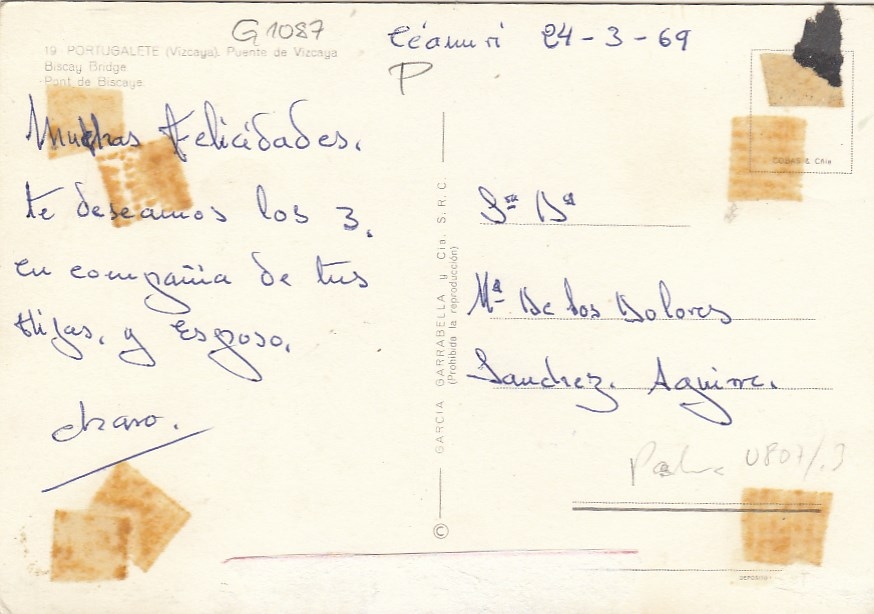 G 1087
Céanuri 24-3-69
P
19 PORTUGALETE (Vizcaya). Puente de Vizcaya
Biscay Bridge
Pont de Biscaye
Muchas Felicidades.
te deseamos los 3,
en compañia de tus
Hijas, y Esposo,
charo.
GARCIA GARRABELLA y Cia. S. R. C.
(Prohibida la reproducción)
©
Sra Dª
Mª De los Dolores
Sanchez. Aguirre.